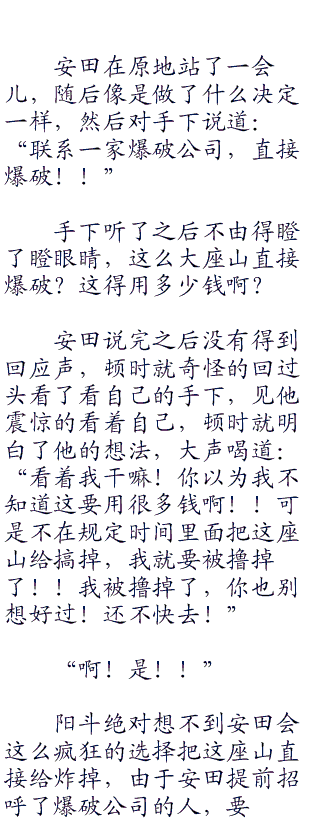 安田在原地站了一会
儿，随后像是做了什么决定
一样，然后对手下说道：
“联系一家爆破公司，直接
爆破！！”
手下听了之后不由得瞪
了瞪眼睛，这么大座山直接
爆破？这得用多少钱啊？
安田说完之后没有得到
回应声，顿时就奇怪的回过
头看了看自己的手下，见他
震惊的看着自己，顿时就明
白了他的想法，大声喝道：
“看着我干嘛！你以为我不
知道这要用很多钱啊！！可
是不在规定时间里面把这座
山给搞掉，我就要被撸掉
了！！我被撸掉了，你也别
想好过！还不快去！”
“啊！是！！”
阳斗绝对想不到安田会
这么疯狂的选择把这座山直
接给炸掉，由于安田提前招
呼了爆破公司的人，要